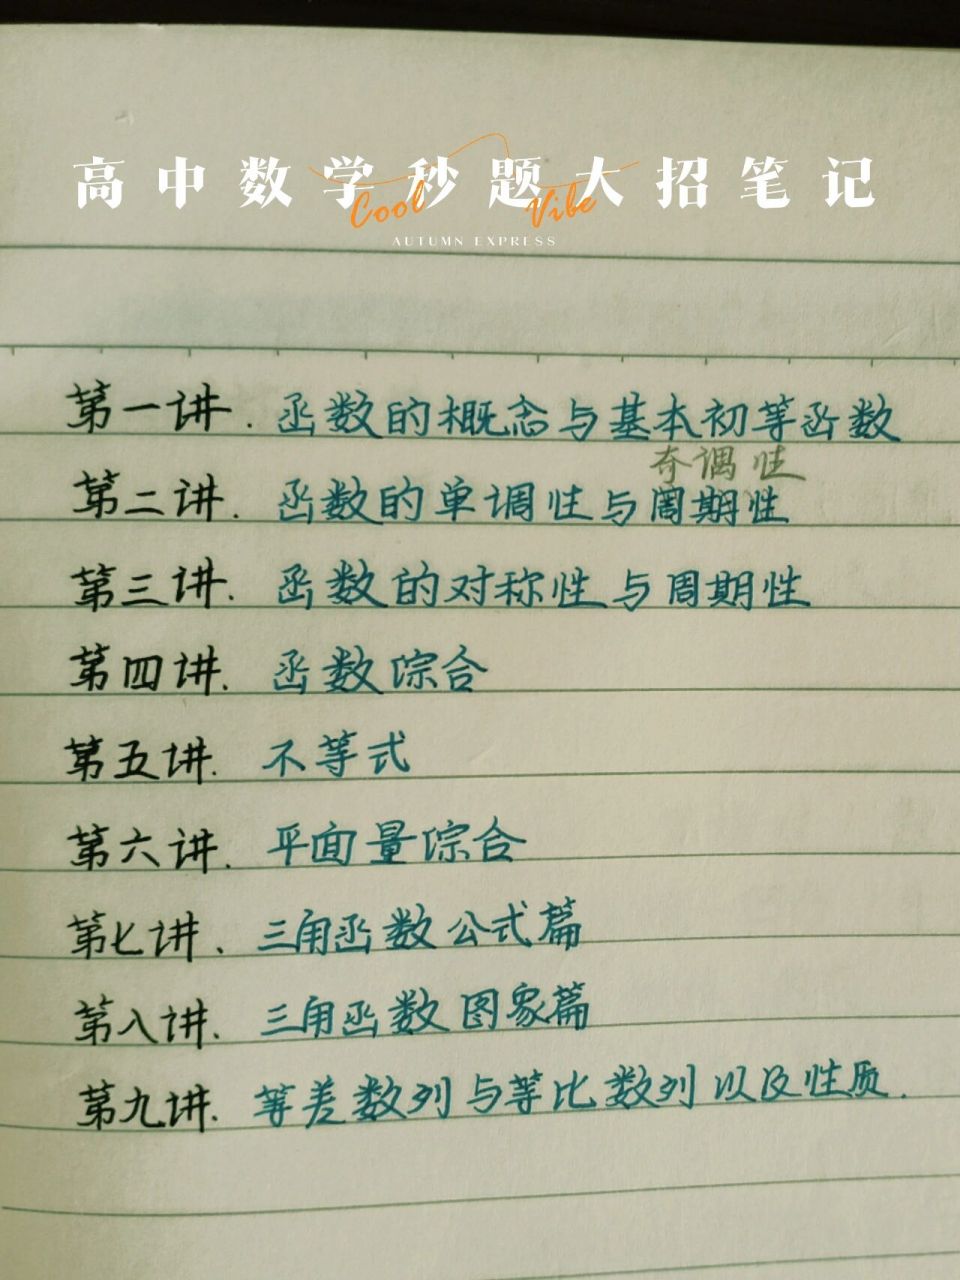 高中数学秒题大招笔记
Cool Vibe
AUTUMN EXPRESS
第一讲. 函数的概念与基本初等函数
奇偶性
第二讲. 函数的单调性与周期性
第三讲. 函数的对称性与周期性
第四讲. 函数综合
第五讲. 不等式
第六讲. 平面量综合
第七讲. 三角函数公式篇
第八讲. 三角函数图象篇
第九讲. 等差数列与等比数列以及性质.